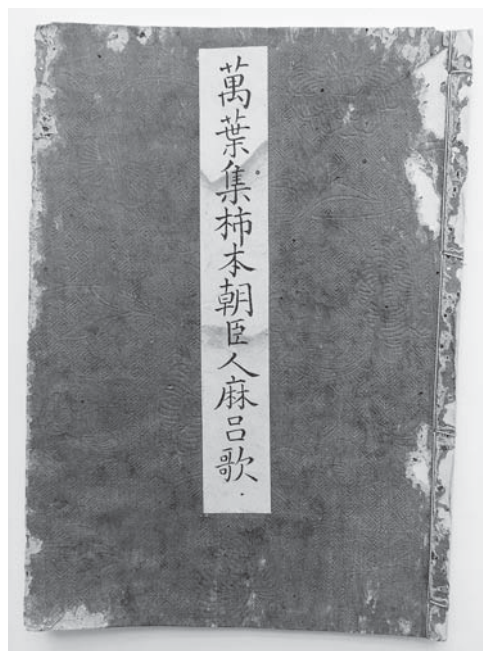 萬葉集柿本朝臣人麻呂歌